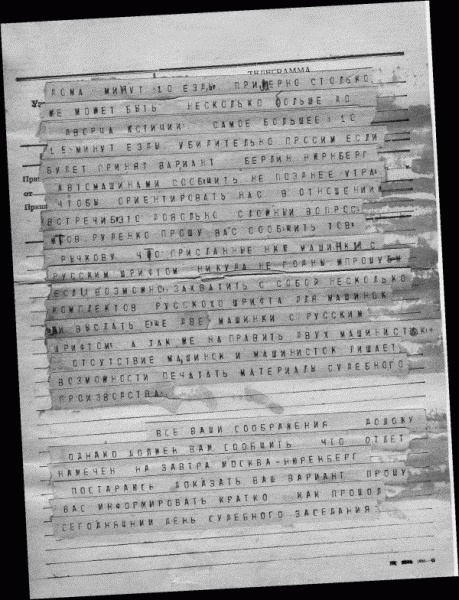 ТЕЛЕГРАММА
ДОМА МИНУТ 10 ЕЗДЫ ПРИМЕРНО СТОЛЬКО
ЖЕ МОЖЕТ БЫТЬ НЕСКОЛЬКО БОЛЬШЕ ДО
ДВОРЦА ЮСТИЦИИ САМОЕ БОЛЬШЕЕ 10
15 МИНУТ ЕЗДЫ УБЕДИТЕЛЬНО ПРОСИМ ЕСЛИ
БУДЕТ ПРИНЯТ ВАРИАНТ БЕРЛИН НЮРНБЕРГ
АВТОМАШИНАМИ СООБЩИТЬ НЕ ПОЗДНЕЕ УТРА
ЧТОБЫ ОРИЕНТИРОВАТЬ НАС В ОТНОШЕНИИ
ВСТРЕЧИ ЭТО ДОВОЛЬНО СЛОЖНЫЙ ВОПРОС
РУДЕНКО ПРОШУ ВАС СООБЩИТЬ ТОВ
РЫЧКОВУ ЧТО ПРИСЛАННЫЕ НКЮ МАШИНКИ С
РУССКИМ ШРИФТОМ НИКУДА НЕ ГОДНЫ ПРОШУ
ЕСЛИ ВОЗМОЖНО ЗАХВАТИТЬ С СОБОЙ НЕСКОЛЬКО
КОМПЛЕКТОВ РУССКОГО ШРИФТА ДЛЯ МАШИНОК
ИЛИ ВЫСЛАТЬ ЕЩЕ ДВЕ МАШИНКИ С РУССКИМ
ШРИФТОМ А ТАК ЖЕ НАПРАВИТЬ ДВУХ МАШИНИСТОК
ОТСУТСТВИЕ МАШИНОК И МАШИНИСТОК ЛИШАЕТ
ВОЗМОЖНОСТИ ПЕЧАТАТЬ МАТЕРИАЛЫ СУДЕБНОГО
ПРОИЗВОДСТВА
ВСЕ ВАШИ СООБРАЖЕНИЯ ДОЛОЖУ
ОДНАКО ДОЛЖЕН ВАМ СООБЩИТЬ ЧТО ОТЛЕТ
НАМЕЧЕН НА ЗАВТРА МОСКВА-НЮРЕНБЕРГ
ПОСТАРАЮСЬ ДОКАЗАТЬ ВАШ ВАРИАНТ ПРОШУ
ВАС ИНФОРМИРОВАТЬ КРАТКО КАК ПРОШЕЛ
СЕГОДНЯШНИЙ ДЕНЬ СУДЕБНОГО ЗАСЕДАНИЯ